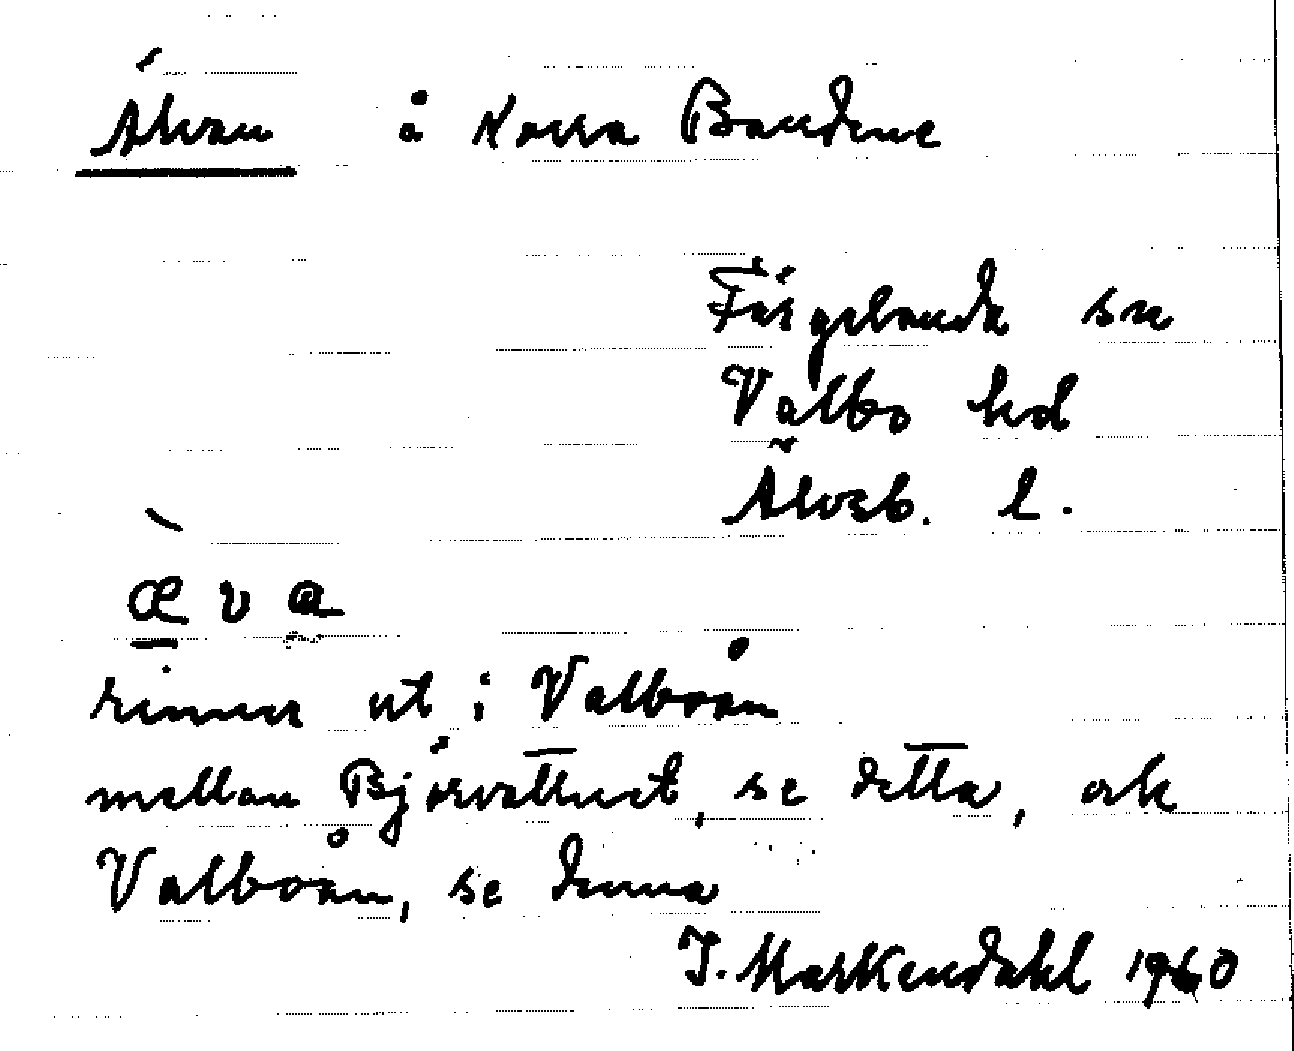 Älvan å Norra Bandene
Färgelanda sn
Valbo hd
Älvsb. l.
æ̀va
rinner ut i Valboån
mellan Björvattnet, se detta, ock
Valboån, se denna
J. Markendahl 1960